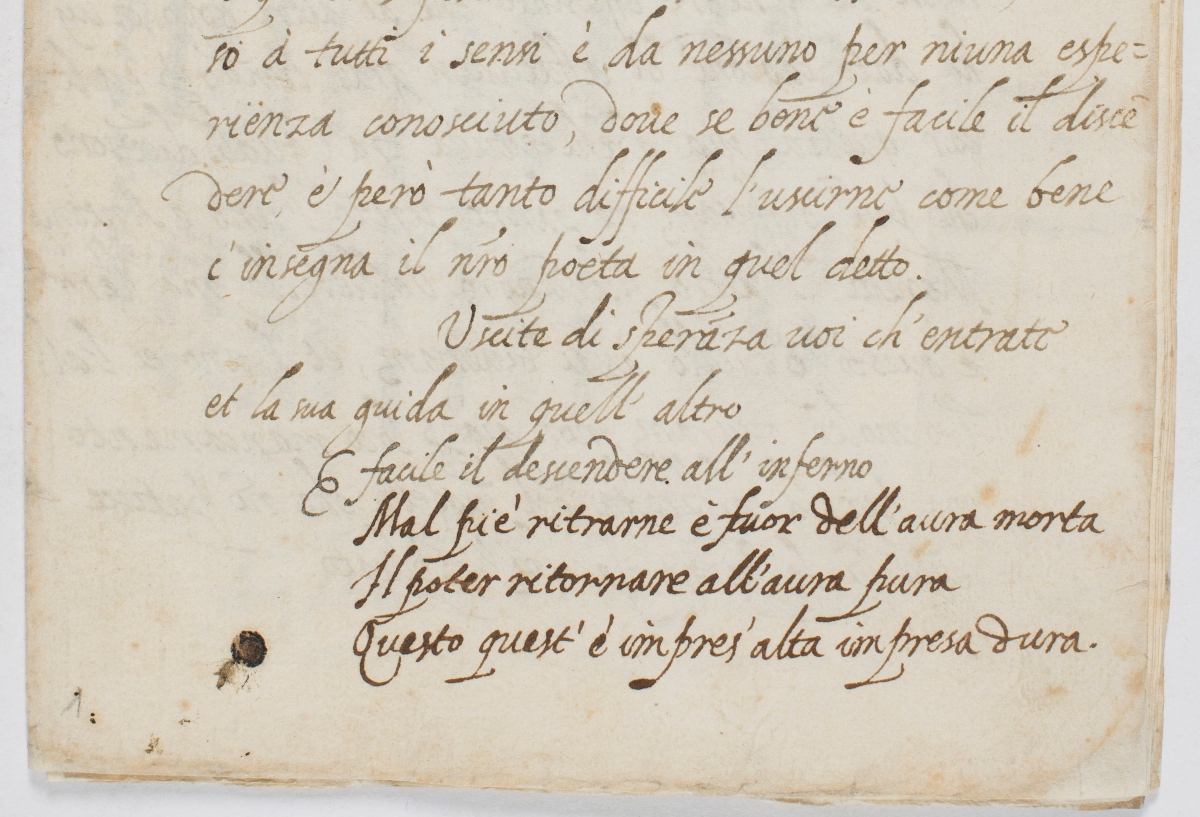 so à tutti i sensi è da nessuno per niuna espe=
rienza conosciuto, doue se bene è facile il discē
dere, è però tanto difficile l'uscirne come bene
c'insegna il nr̃o poeta in quel detto.
Uscite di sperāza uoi ch'entrate
et la sua guida in quell'altro
È facile il descendere all'inferno
Mal può ritrarne è fuor dell'aura morta
Il poter ritornare all'aura pura
Questo quest'è impres'alta impresa dura.
1.